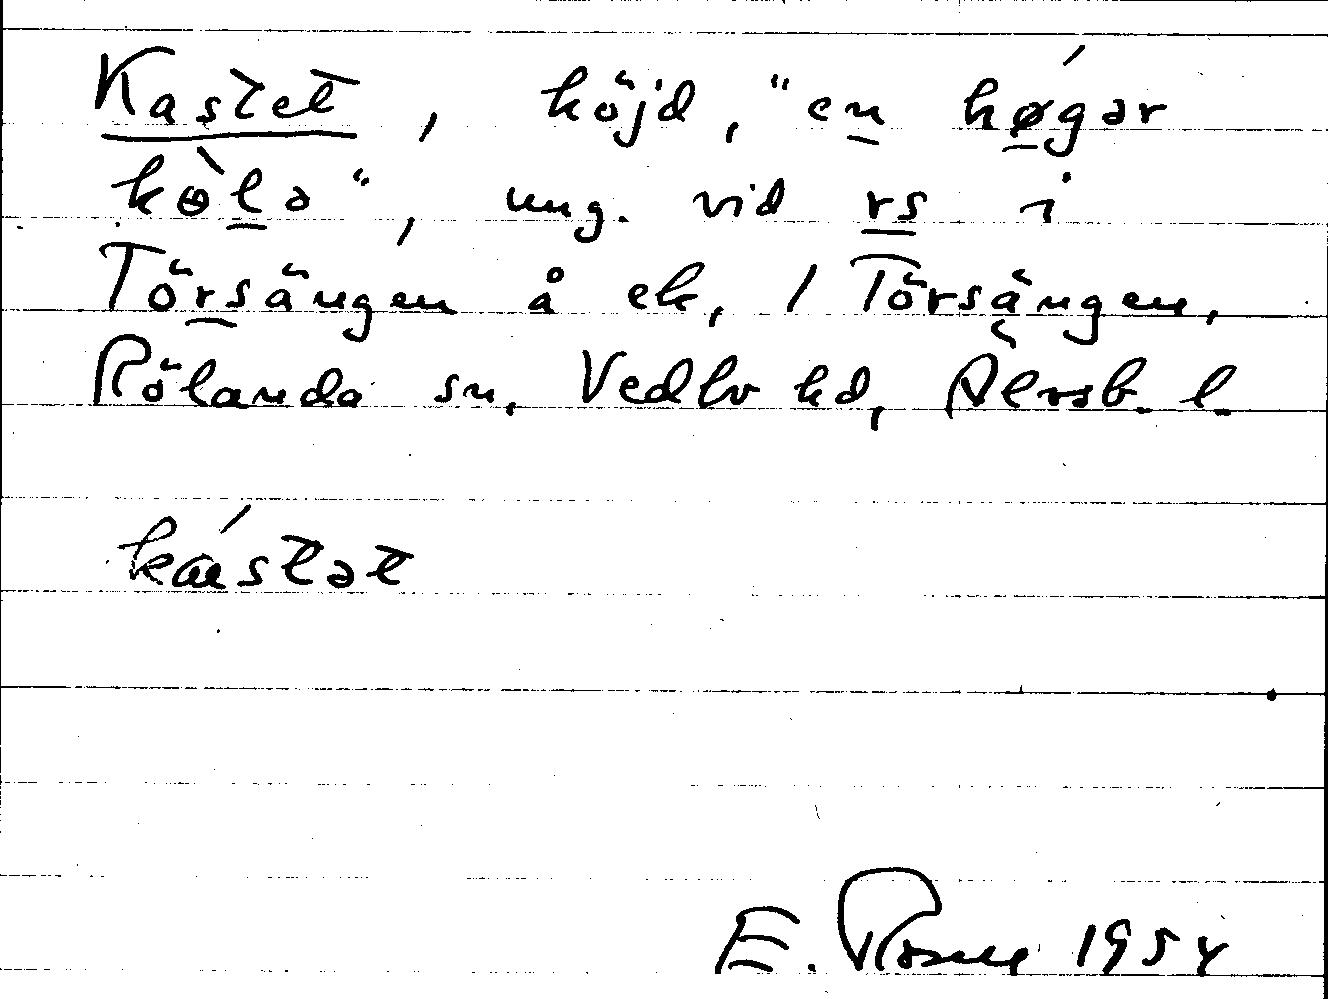 Kastet, höjd, "en høgər
kɵ̀lə", ung. vid rs i
Törsängen å ek, 1 Törsängen,
Rölanda sn, Vedbo hd, Älvsb. l.
kástət
E. Rosell 1954